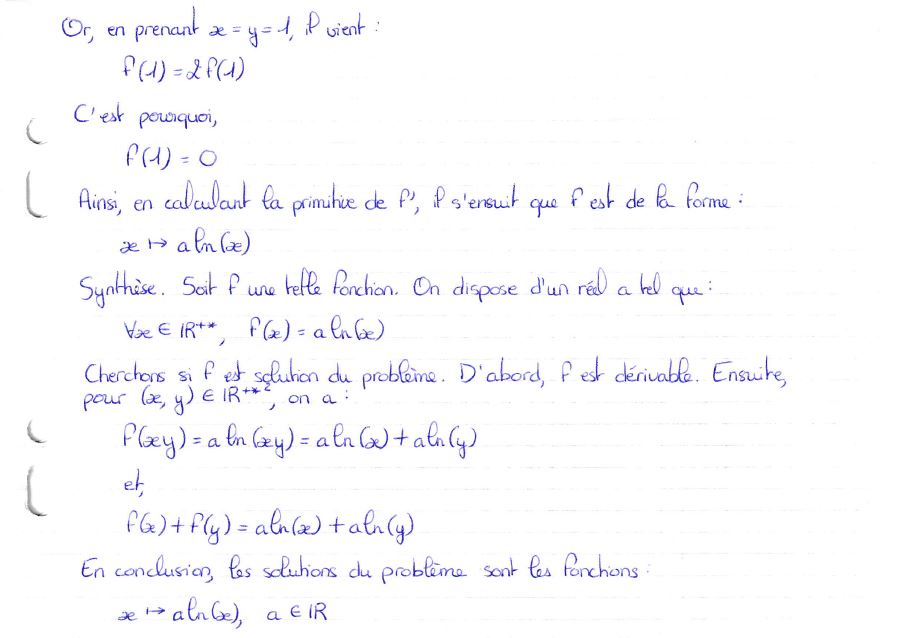 Or, en prenant x = y = 1, il vient :
f(1) = 2f(1)
C'est pourquoi,
f(1) = 0
Ainsi, en calculant la primitive de f', il s'ensuit que f est de la forme :
x ↦ a ln(x)
Synthèse. Soit f une telle fonction. On dispose d'un réel a tel que :
∀x ∈ IR⁺*, f(x) = a ln(x)
Cherchons si f est solution du problème. D'abord, f est dérivable. Ensuite,
pour (x, y) ∈ IR⁺*², on a :
f(xy) = a ln(xy) = a ln(x) + a ln(y)
et,
f(x) + f(y) = a ln(x) + a ln(y)
En conclusion, les solutions du problème sont les fonctions :
x ↦ a ln(x), a ∈ IR